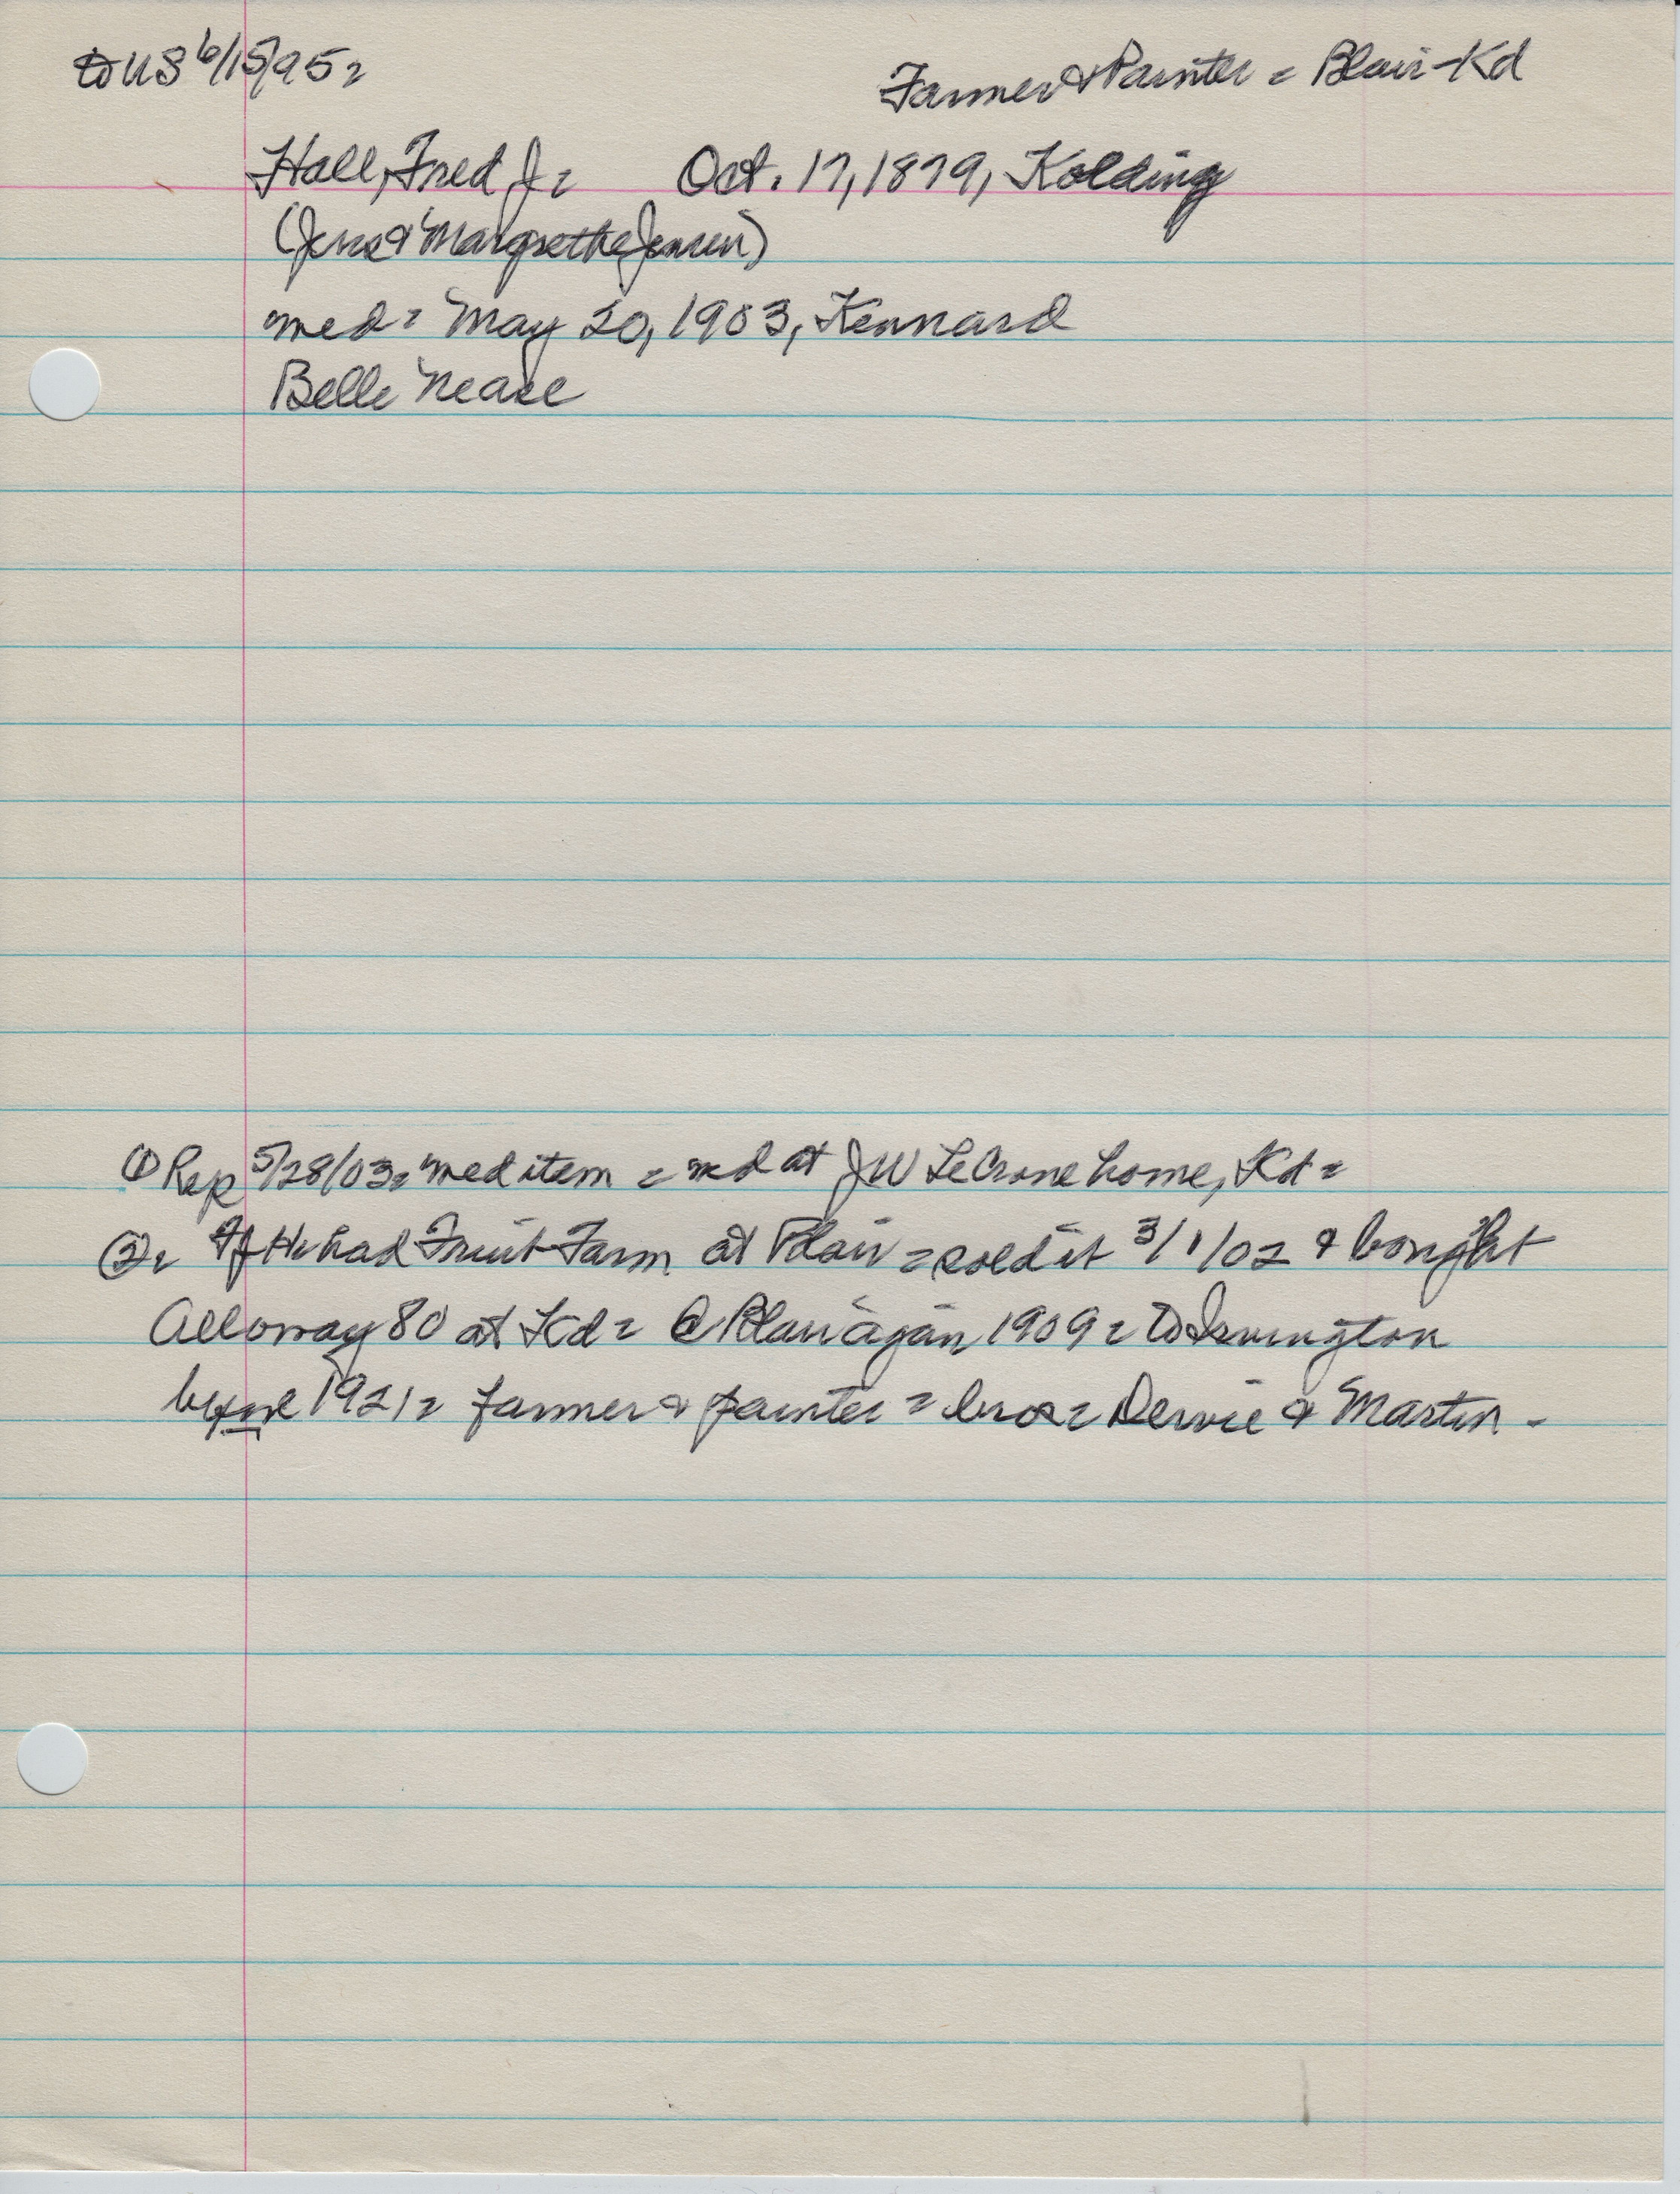 to US 6/15/95 =
Farmer & Painter = Blair - Kd
Hall, Fred J = Oct. 17, 1879, Kolding
(Jens & Margrethe Jensen)
med = May 20, 1903, Kennard
Belle Nease
① Rep 5/28/03 = med item = md at JW LeCrone home, Kd =
②= If H = had Fruit Farm at Blair = sold it 3/1/02 & bought
Alloway 80 at Kd = @ Blair again 1909 = to Irvington
before 1921 = farmer & painter = bros = Dervie & Martin -